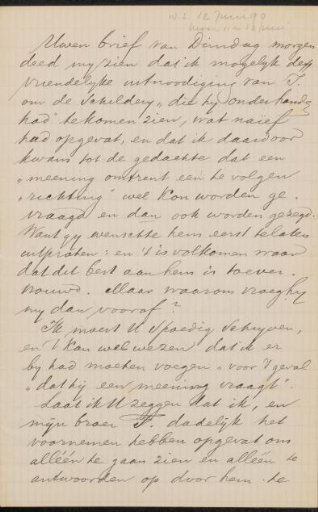 12 Juni 90
Uwen brief van Dinsdag morgen
deed my zien dat ik mogelyk deze
vriendelyke uitnoodiging van T.
om de Schildery, die hy onderhanden
had te komen zien, wat naïef
had opgevat, en dat ik daardoor
kwam tot de gedachte dat een
„meening omtrent een te volgen
„richting" wel kon worden ge-
vraagd en dan ook worden gezegd.
Want gy wenschte hem eerst te laten
uitpraten: en 't is volkomen waar
dat dit best aan hem is toever-
trouwd. Maar waarom vroeg hy
my dan vooraf?
Ik moest U spoedig schryven,
en 't kan wel wezen dat ik er
by had moeten voegen „voor 't geval
„dat hy een meening vraagt".
Laat ik U zeggen dat ik, en
mijn broer F. dadelijk het
voornemen hebben opgevat om
alléén te gaan zien en alléén te
antwoorden op door hem te